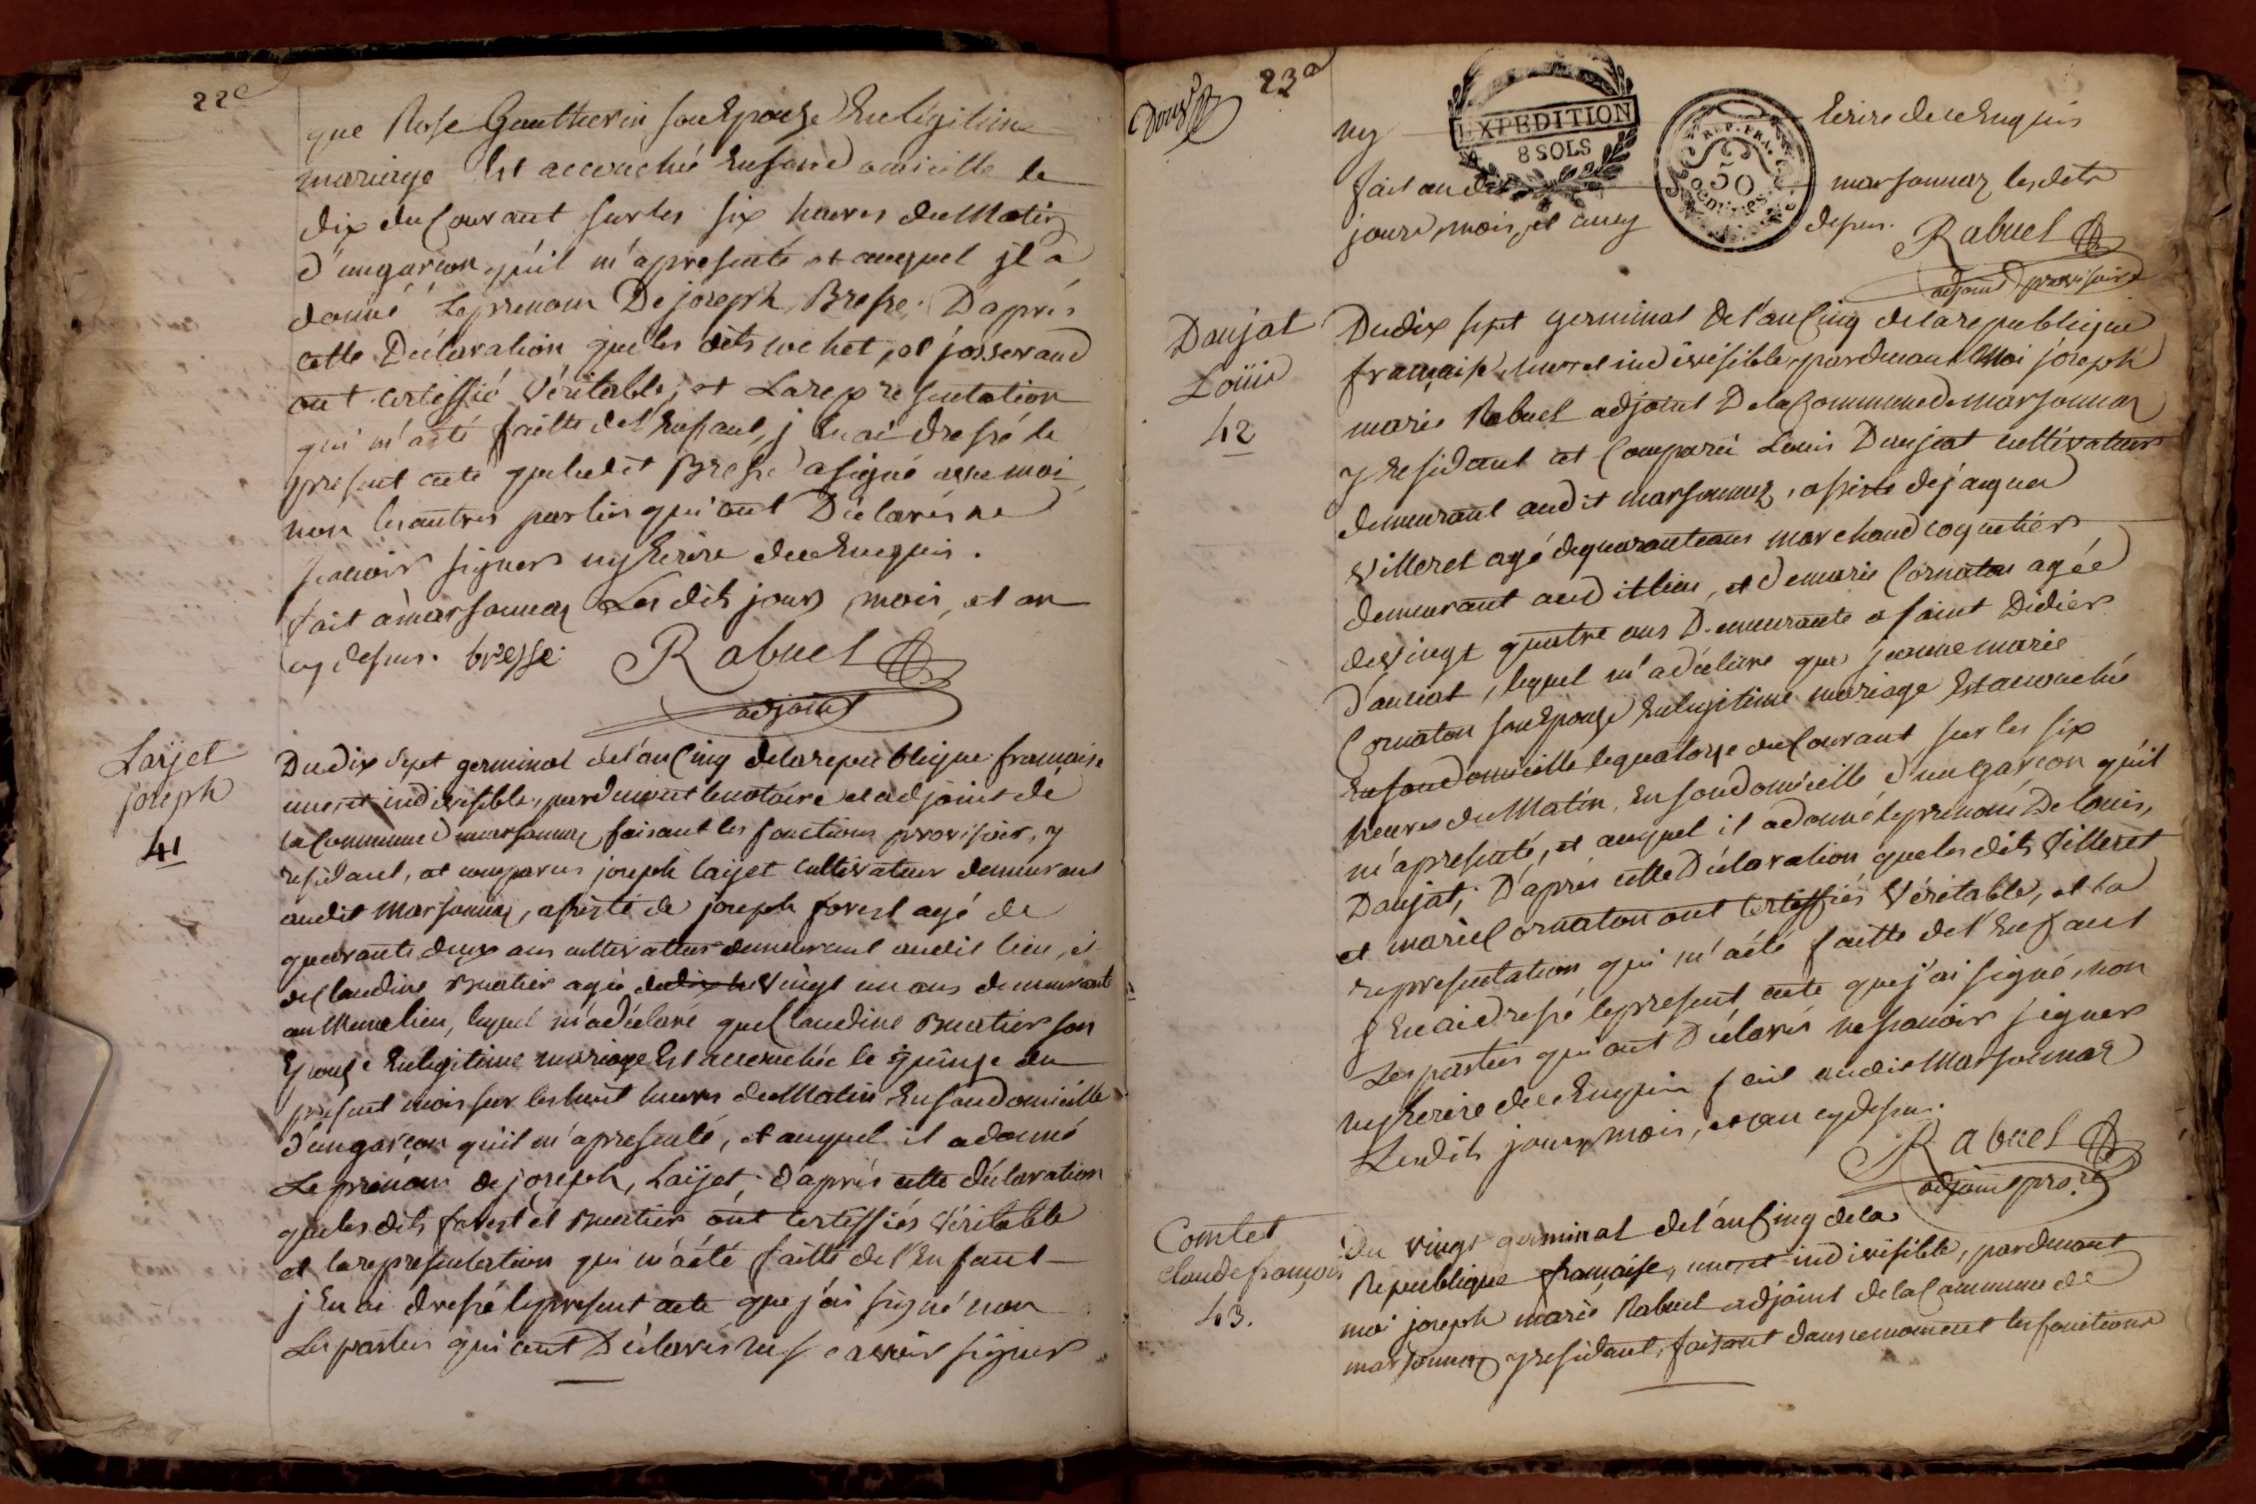 22e
que Rose Gautherin son Epouze En légitime
mariage Est accouchée En son domicille le
dix du Courant sur les six heures du Matin
d'un garcon, qu'il m'a presenté et auquel jl a
donné Le prenom De joseph Bresse. D'aprés
cette Déclaration que les dits et josserand
ont certiffié Véritable, et La representation
qui m'a été faitte de l'Enfant, j'En ai dressé le
present acte que ledit Bresse a signé avec moi
non les autres parties qui ont Déclarés ne
scavoir signer ny Ecrire de ce Enquis.
fait à marsonnaz Les dits jour, mois, et an
cy dessus. bresse Rabuel
adjoint
Laÿet
joseph
41
Du dix sept germinal de l'an Cinq de la republique francaise
une et indivisible, pardevant le notaire et adjoint de
la Commune de marsonnaz faisant les fonctions provisoir, y
residant, et comparu joseph laÿet Cultivateur demeurant
audit Marsonnaz, assisté de joseph forest agé de
quarante deux ans cultivateur demeurant audit lieu, et
de Claudine Buatier agée vingt un ans demeurante
au Meme lieu, lequel m'a déclaré que Claudine Buatier son
Epouze En legitime mariage Est accouchée le quinze du
present mois sur les huit heures du Matin En son Domicille
d'un garcon qu'il m'a presenté, et auquel il a donné
Le prenom de joseph, Laÿet, d'aprés cette déclaration
que les dits forest et Buatier ont certiffiés Véritable
et la representation qui m'a été faitte de l'Enfant
j'En ai dressé le present acte que j'ai signé non
Les parties qui ont Déclarés ne scavoir signer
23e
ny Ecrire de ce Enquis
EXPEDITION
8 SOLS
REP. FRA.
50
centimes
fait au dit marsonnaz les dits
jour, mois, et an cy dessus. Rabuel
adjoint provisoire
Daujat
Loüis
42
Du dix sept germinal de l'an Cinq de la republique
francaise, une et indivisible, pardevant Moi joseph
marie Rabuel adjoint De la Commune de marsonnaz
y residant et Comparu Louis Daujat cultivateur
demeurant audit marsonnaz, assisté de jacques
Villeret agé de quarante ans marchand coquetier
demeurant audit lieu, et de marie Cornaton agée
de vingt quatre ans Demeurante a saint Didier
d'aussiat, lequel m'a déclaré que jeanne marie
Cornaton son Epouze En legitime mariage Est accouchée
En son domicille le quatorze du Courant sur les six
heures du Matin, En son Domicille d'un garcon qu'il
m'a presenté, et auquel il a donné le prenom De louis,
Daujat; D'aprés cette Déclaration que les dits Villeret
et marie Cornaton ont certiffiés Véritable, et la
representation qui m'a été faitte de l'Enfant
j'En ai dressé le present acte que j'ai signé, non
Les parties qui ont Déclarés ne scavoir signer
ny Ecrire de ce Enquis fait audit Marsonnaz
Les dits jour, mois, et an cy dessus.
Rabuel
adjoint pro.re
Comtet
Claude françois
43.
Du vingt germinal de l'an Cinq de la
Republique francaise, une et indivisible, pardevant
moi joseph marie Rabuel adjoint de la Commune de
marsonnaz y residant, faisant dans ce moment les fonctions